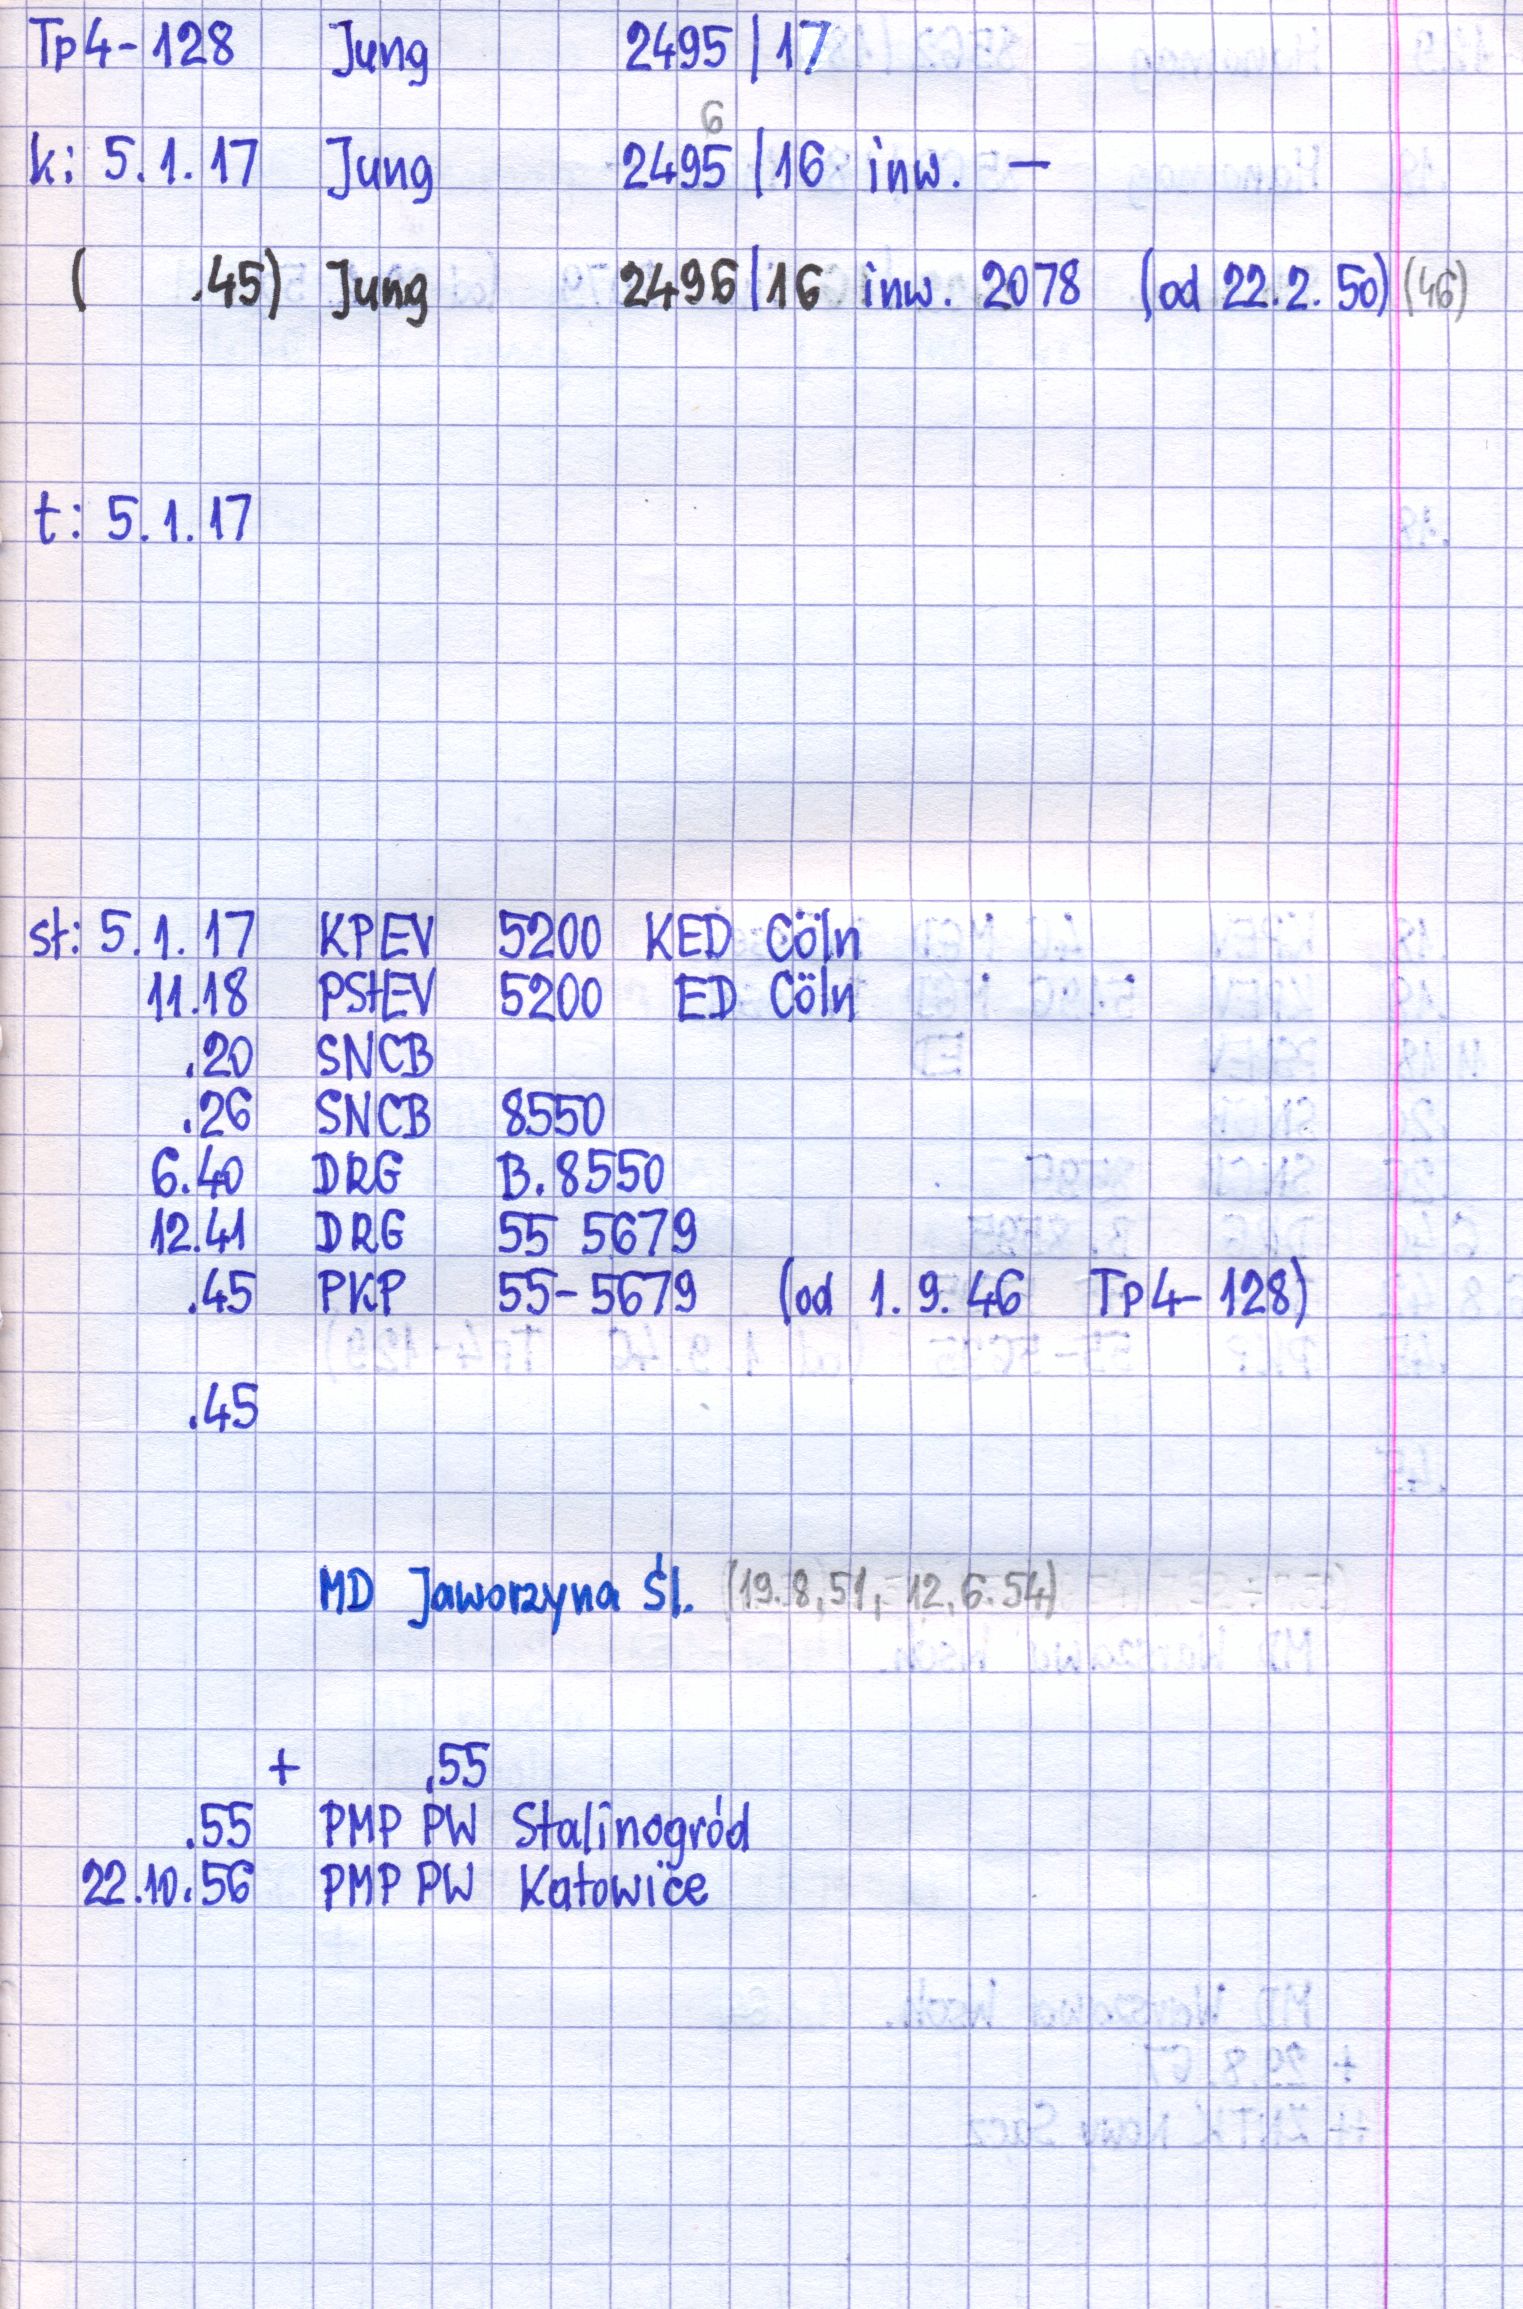 Tp4-128 Jung 2495/17
6
k: 5.1.17 Jung 2495/16 inw. —
( .45) Jung 2496/16 inw. 2078 (od 22.2.50) (46)
t: 5.1.17
st: 5.1.17 KPEV 5200 KED Cöln
11.18 PStEV 5200 ED Cöln
.20 SNCB
.26 SNCB 8550
6.40 DRG B.8550
12.41 DRG 55 5679
.45 PKP 55-5679 (od 1.9.46 Tp4-128)
.45
MD Jaworzyna Śl. (19.8.51, 12.6.54)
+ .55
.55 PMP PW Stalinogród
22.10.56 PMP PW Katowice